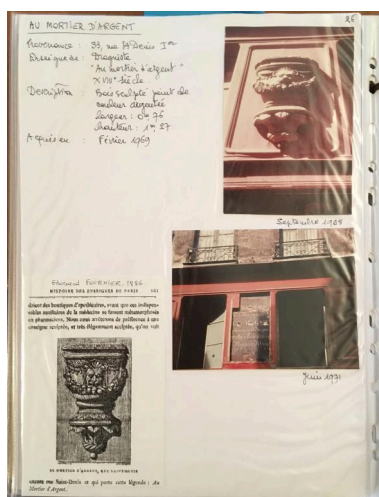 26
AU MORTIER D'ARGENT
Provenance : 33, rue St Denis Ier
Enseigne de : Droguiste
"Au mortier d'argent"
XVIIIe siècle
Description : Bois sculpté peint de
couleur
largeur : 0m 76
hauteur : 1m 27
Acquis en : Février 1969
Septembre 1985
Juin 1991
Edouard FOURNIER,
HISTOIRE DES ENSEIGNES DE PARIS
décor des boutiques d'apothicaires, avant que ces indispen-
sables auxiliaires de la médecine se fussent métamorphosés
en pharmaciens. Nous nous arrêterons de préférence à une
enseigne sculptée, et très élégamment sculptée, qu'on voit
LE MORTIER D'ARGENT, RUE SAINT-DENIS
encore rue Saint-Denis et qui porte cette légende : Au
Mortier d'Argent.